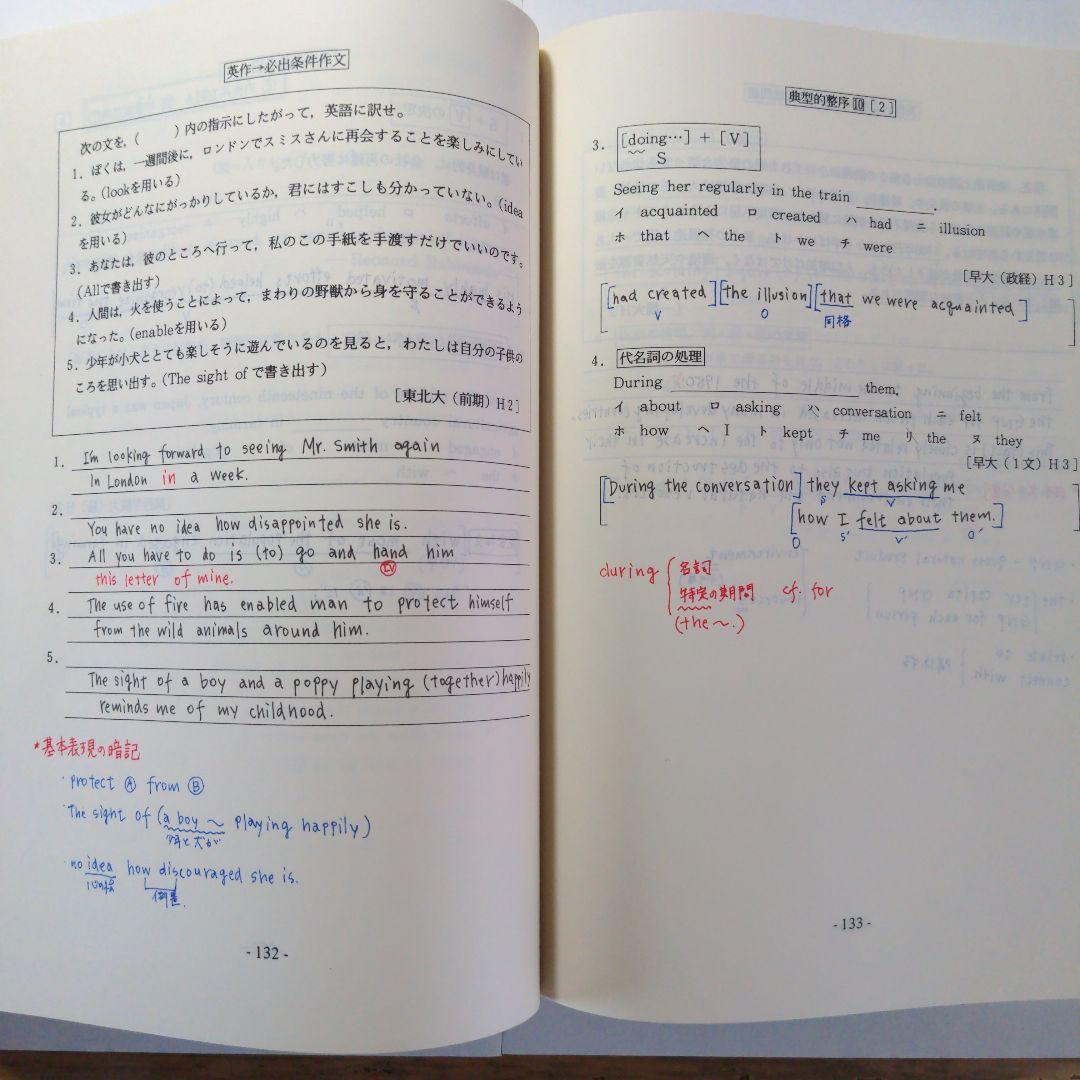 英作→必出条件作文
次の文を,(　　)内の指示にしたがって,英語に訳せ。
1.ぼくは,一週間後に,ロンドンでスミスさんに再会することを楽しみにしてい
る。(lookを用いる)
2.彼女がどんなにがっかりしているか,君にはすこしも分かっていない。(idea
を用いる)
3.あなたは,彼のところへ行って,私のこの手紙を手渡すだけでいいのです。
(Allで書き出す)
4.人間は,火を使うことによって,まわりの野獣から身を守ることができるよう
になった。(enableを用いる)
5.少年が小犬ととても楽しそうに遊んでいるのを見ると,わたしは自分の子供の
ころを思い出す。(The sight ofで書き出す)
[東北大(前期)H2]
1. I'm looking forward to seeing Mr. Smith again
in London in a week.
2.
You have no idea how disappointed she is.
3. All you have to do is (to) go and hand him
IV
this letter of mine.
4. The use of fire has enabled man to protect himself
from the wild animals around him.
5.
The sight of a boy and a poppy playing (together) happily
reminds me of my childhood.
*基本表現の暗記
・protect Ⓐ from Ⓑ
・The sight of (a boy ~ playing happily)
少年と犬が
・no idea how discouraged she is.
倒置.
- 132 -
典型的整序10[2]
3. [doing…]+[V]
S
Seeing her regularly in the train ________.
イ acquainted ロ created ハ had ニ illusion
ホ that ヘ the ト we チ were
[早大(政経)H3]
[had created][the illusion][that we were acquainted]
V O 同格
4. 代名詞の処理
During ________ them.
イ about ロ asking ハ conversation ニ felt
ホ how ヘ I ト kept チ me リ the ヌ they
[早大(1文)H3]
[During the conversation] they kept asking me
S V
[how I felt about them.]
O S' V' O'
during { 名詞
特定の期間 cf. for
(the ~.)
- 133 -